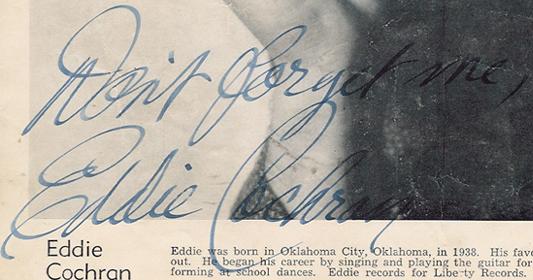 Don't forget me,
Eddie Cochran
Eddie
Cochran
Eddie was born in Oklahoma City, Oklahoma, in 1938. His favo
out. He began his career by singing and playing the guitar for
forming at school dances. Eddie records for Liberty Records.